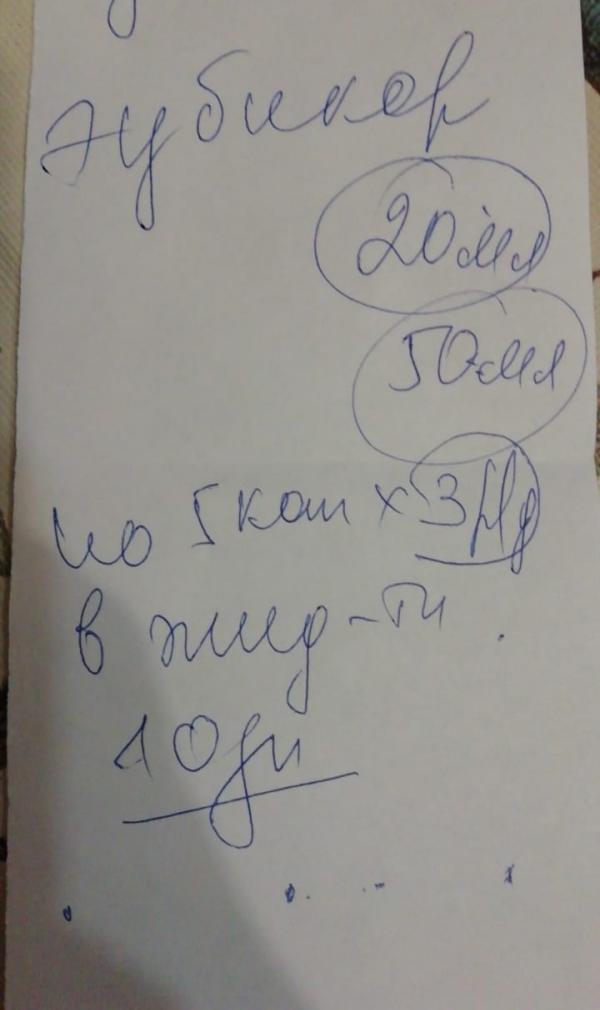 эубикор
20 мл
50 мл
по 5 кап х 3 Нд
в жид-ти.
10 дн